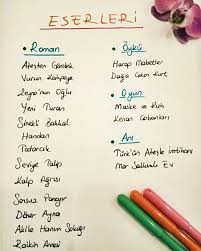 ESERLERİ
Roman
Ateşten Gömlek
Vurun Kahpeye
Zeyno'nun Oğlu
Yeni Turan
Sinekli Bakkal
Handan
Tatarcık
Seviye Talip
Kalp Ağrısı
Sonsuz Panayır
Döner Ayna
Akile Hanım Sokağı
Raik'in Annesi
Öykü
Harap Mabetler
Dağa Çıkan Kurt
Oyun
Maske ve Ruh
Kenan Çobanları
Anı
Türk'ün Ateşle İmtihanı
Mor Salkımlı Ev